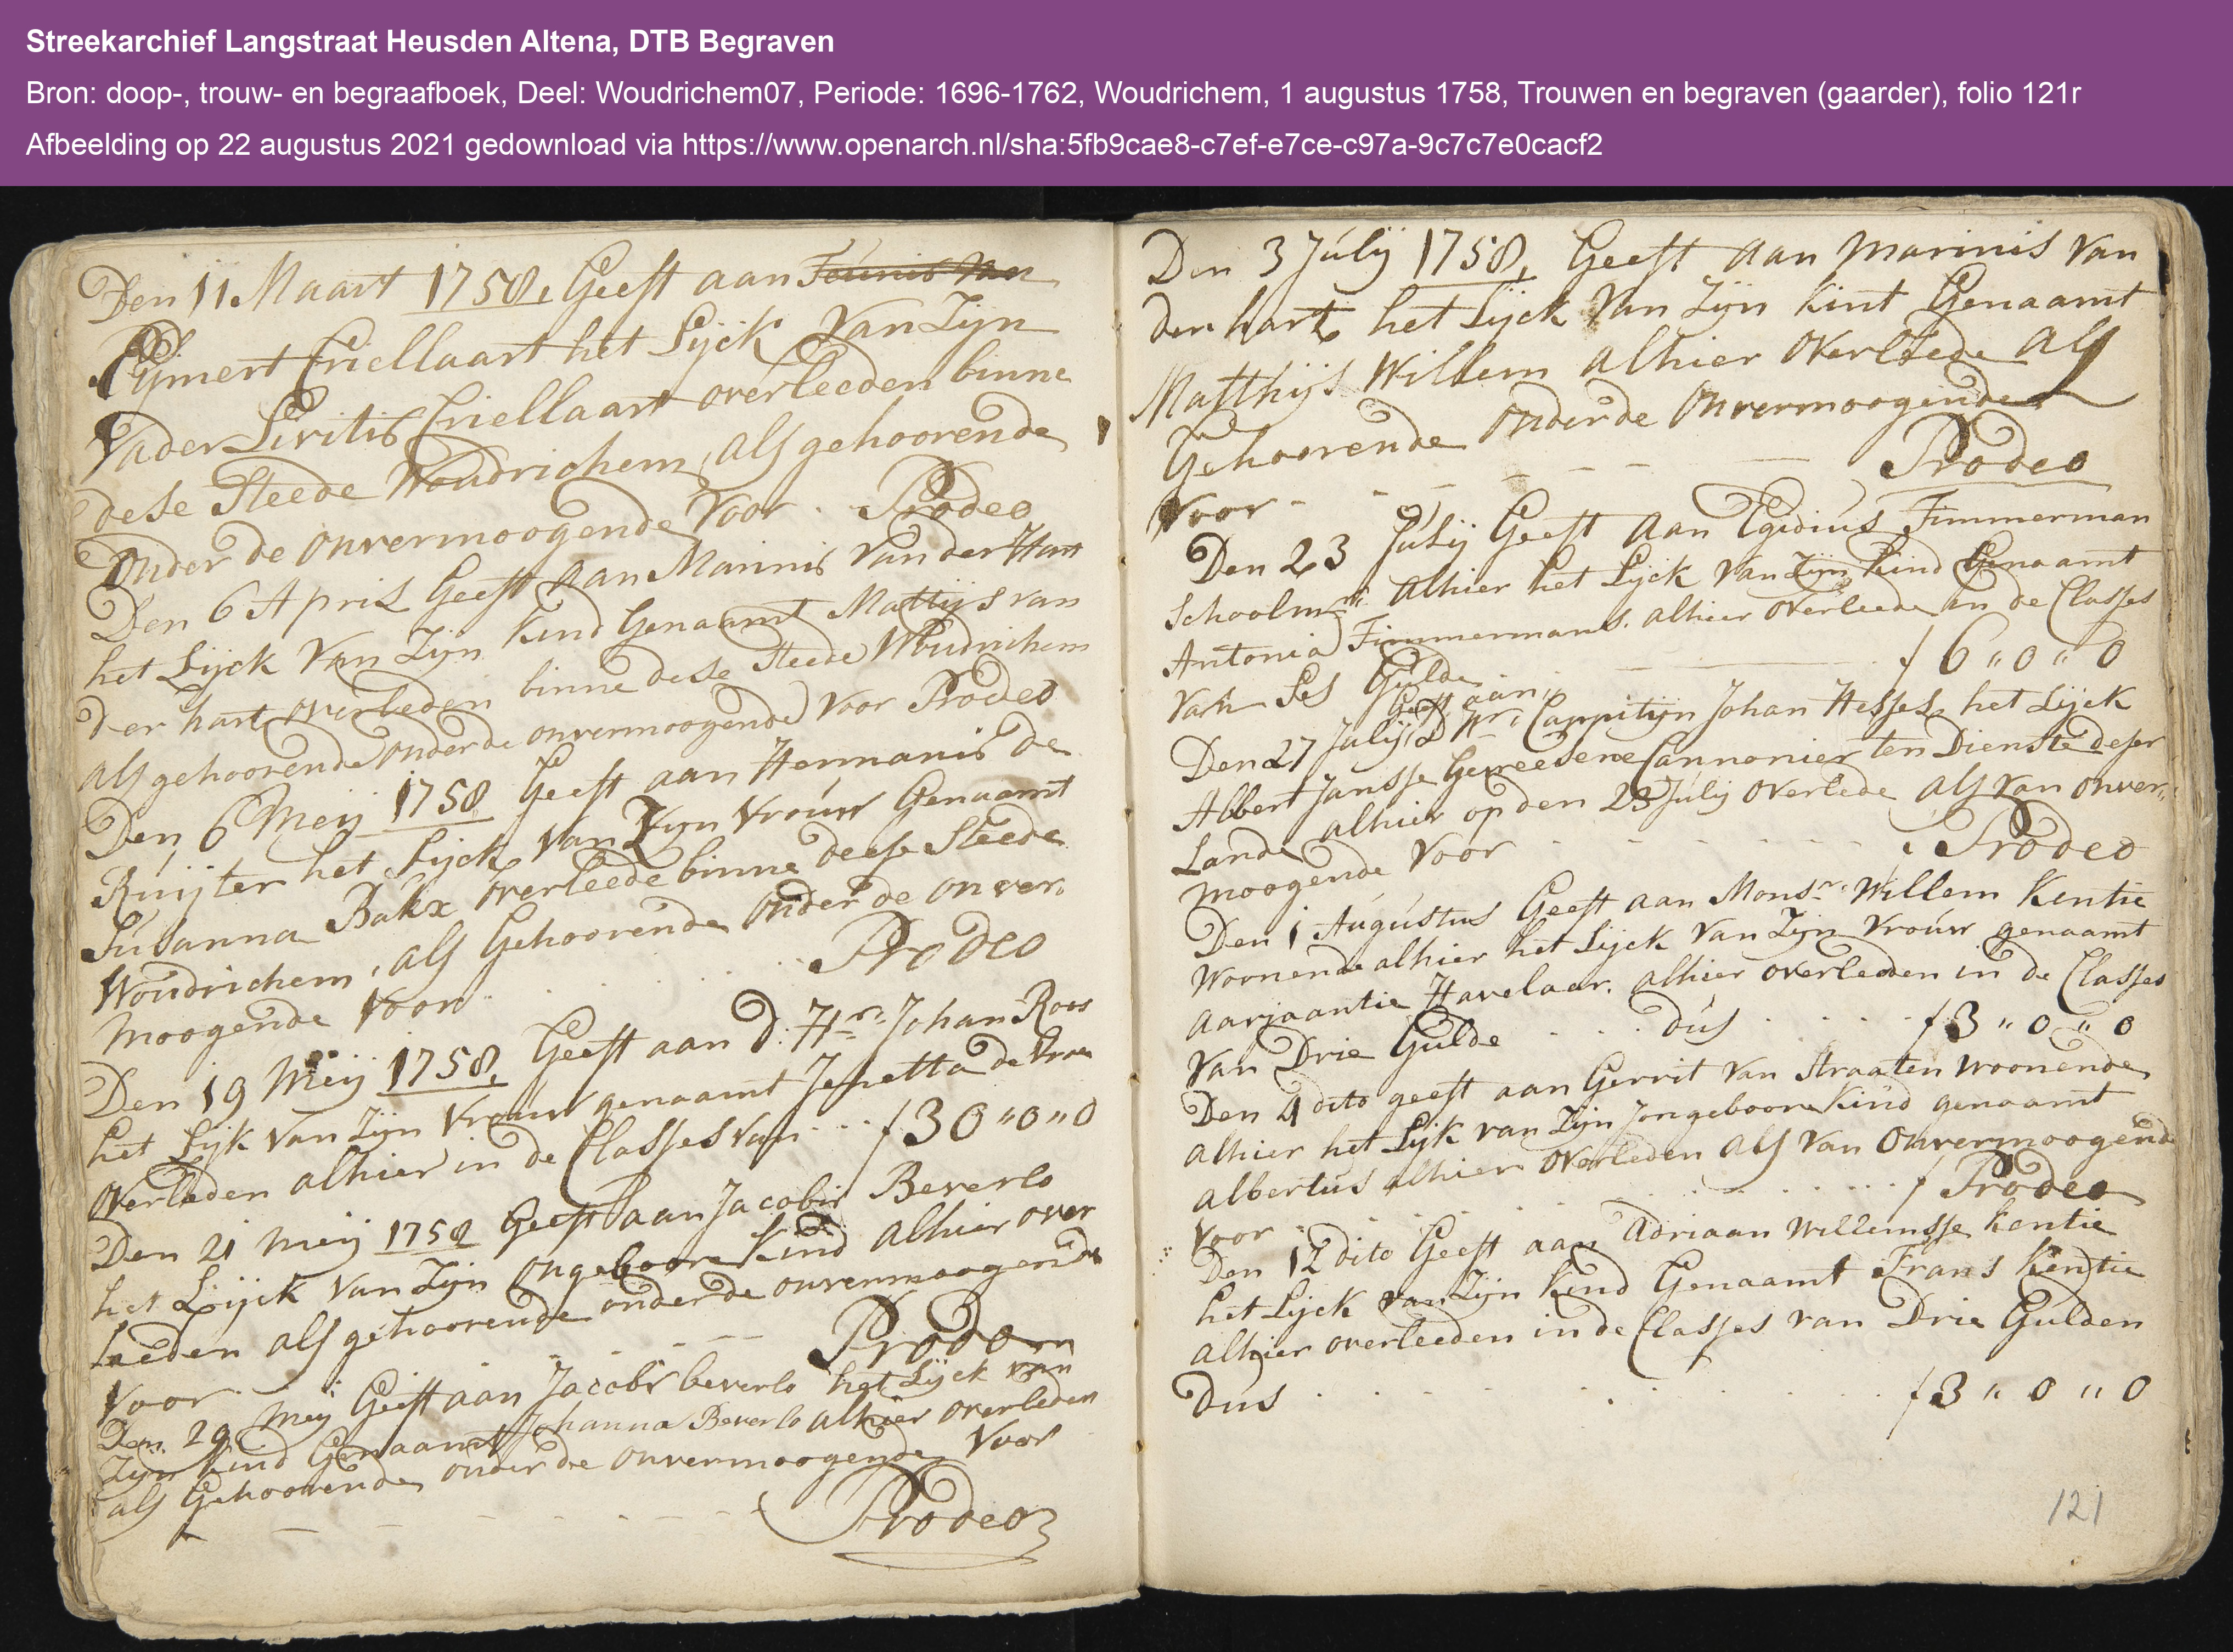 Streekarchief Langstraat Heusden Altena, DTB Begraven
Bron: doop-, trouw- en begraafboek, Deel: Woudrichem07, Periode: 1696-1762, Woudrichem, 1 augustus 1758, Trouwen en begraven (gaarder), folio 121r
Afbeelding op 22 augustus 2021 gedownload via https://www.openarch.nl/sha:5fb9cae8-c7ef-e7ce-c97a-9c7c7e0cacf2
Den 11 Maart 1758, Geeft aan Teunis
Pijmert Criellaart het Lijck van Zijn
Vader Criellaart overleeden binne
dese Steede Woudrichem, als gehoorende
onder de onvermoogende voor. Prodeo
Den 6 April Geeft aan Marinis van der Hart
het Lijck van Zijn kind Genaamt Mattijs van
der hart overleden binne dese Steede Woudrichem
als gehoorende onder de onvermoogende voor Prodeo
Den 6 Meij 1758 Geeft aan Hermanis de
Ruijter het Lijck van Zijn vrouw Genaamt
Susanna Bakx overleede binne deese Steede
Woudrichem, als Gehoorende onder de onver„
moogende voor Prodeo
Den 19 Meij 1758, Geeft aan d: Hr: Johan Roos
het Lijk van Zijn vrouw genaamt de
overleden alhier in de Classes van f 30 „ 0 „ 0
Den 21 Meij 1758 Geeft aan Jacobis Beverlo
het Lijck van Zijn ongeboore kind alhier over
leeden als gehoorende onder de onvermoogende
voor Prodeo
Den 29 Meij Geeft aan Jacobs beverlo het Lijck van
Zijn kind Genaamt Johanna Beverlo alhier overleden
als Gehoorende onder de onvermoogende voor
Prodeo
Den 3 Julij 1758, Geeft aan Marinis van
der hart het Lijck van Zijn kint Genaamt
Matthijs Willem alhier overleede als
Gehoorende onder de onvermoogende
voor Prodeo
Den 23 Julij Geeft aan Egidius Timmerman
Schoolmr: alhier het Lijck van Zijn kind Genaamt
Antonia Timmermans. alhier overleede in de Classes
van Ses Gulde f 6 „ 0 „ 0
Geeft aan
Den 27 Julij, D Hr: Cappitijn Johan Hesses het Lijck
Albert Jansse Geweesene Cannonier ten Dienste deser
Lande alhier op den 25 Julij overlede als van onver„
moogende voor Prodeo
Den 1 Augustus Geeft aan Monsr: Willem Kentie
woonende alhier het Lijck van Zijn vrouw genaamt
aarjaantie Havelaar. alhier overleeden in de Classes
van Drie Gulde dus f 3 „ 0 „ 0
Den 4 dito geeft aan Gerrit van Straaten woonende
alhier het Lijk van Zijn Jongeboore kind genaamt
albertus alhier overleden als van onvermoogende
voor f Prodeo
Den 12 dito Geeft aan Adriaan Willemsse kentie
het Lijck van Zijn kend Genaamt Frans kentie
alhier overleeden in de Classes van Drie Gulden
dus f 3 „ 0 „ 0
121